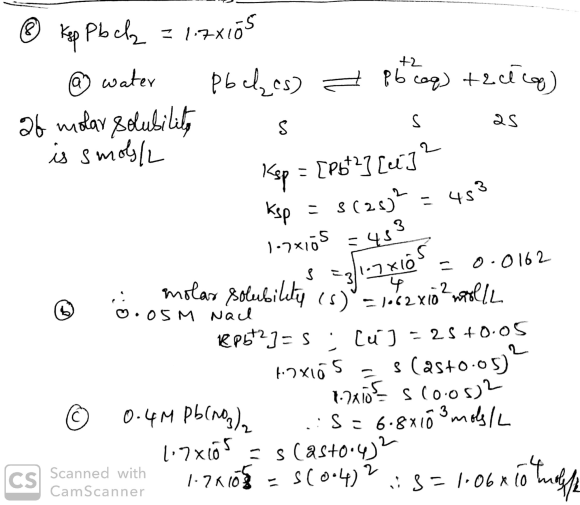 ⑧ Ksp PbCl₂ = 1.7×10⁻⁵
ⓐ water PbCl₂(s) ⇌ Pb⁺²(aq) + 2Cl⁻(aq)
If molar solubility S S 2S
is S mols/L
Ksp = [Pb⁺²][Cl⁻]²
Ksp = S(2S)² = 4S³
1.7×10⁻⁵ = 4S³
S = ∛(1.7×10⁻⁵/4) = 0.0162
∴ molar solubility (S) = 1.62×10⁻² mol/L
ⓑ 0.05M NaCl
[Pb⁺²] = S ; [Cl⁻] = 2S+0.05
1.7×10⁻⁵ = S(2S+0.05)²
1.7×10⁻⁵ = S(0.05)²
∴ S = 6.8×10⁻³ mols/L
ⓒ 0.4M Pb(NO₃)₂
1.7×10⁻⁵ = S(2S+0.4)²
1.7×10⁻⁵ = S(0.4)² ∴ S = 1.06×10⁻⁴ mols/L
CS Scanned with
CamScanner